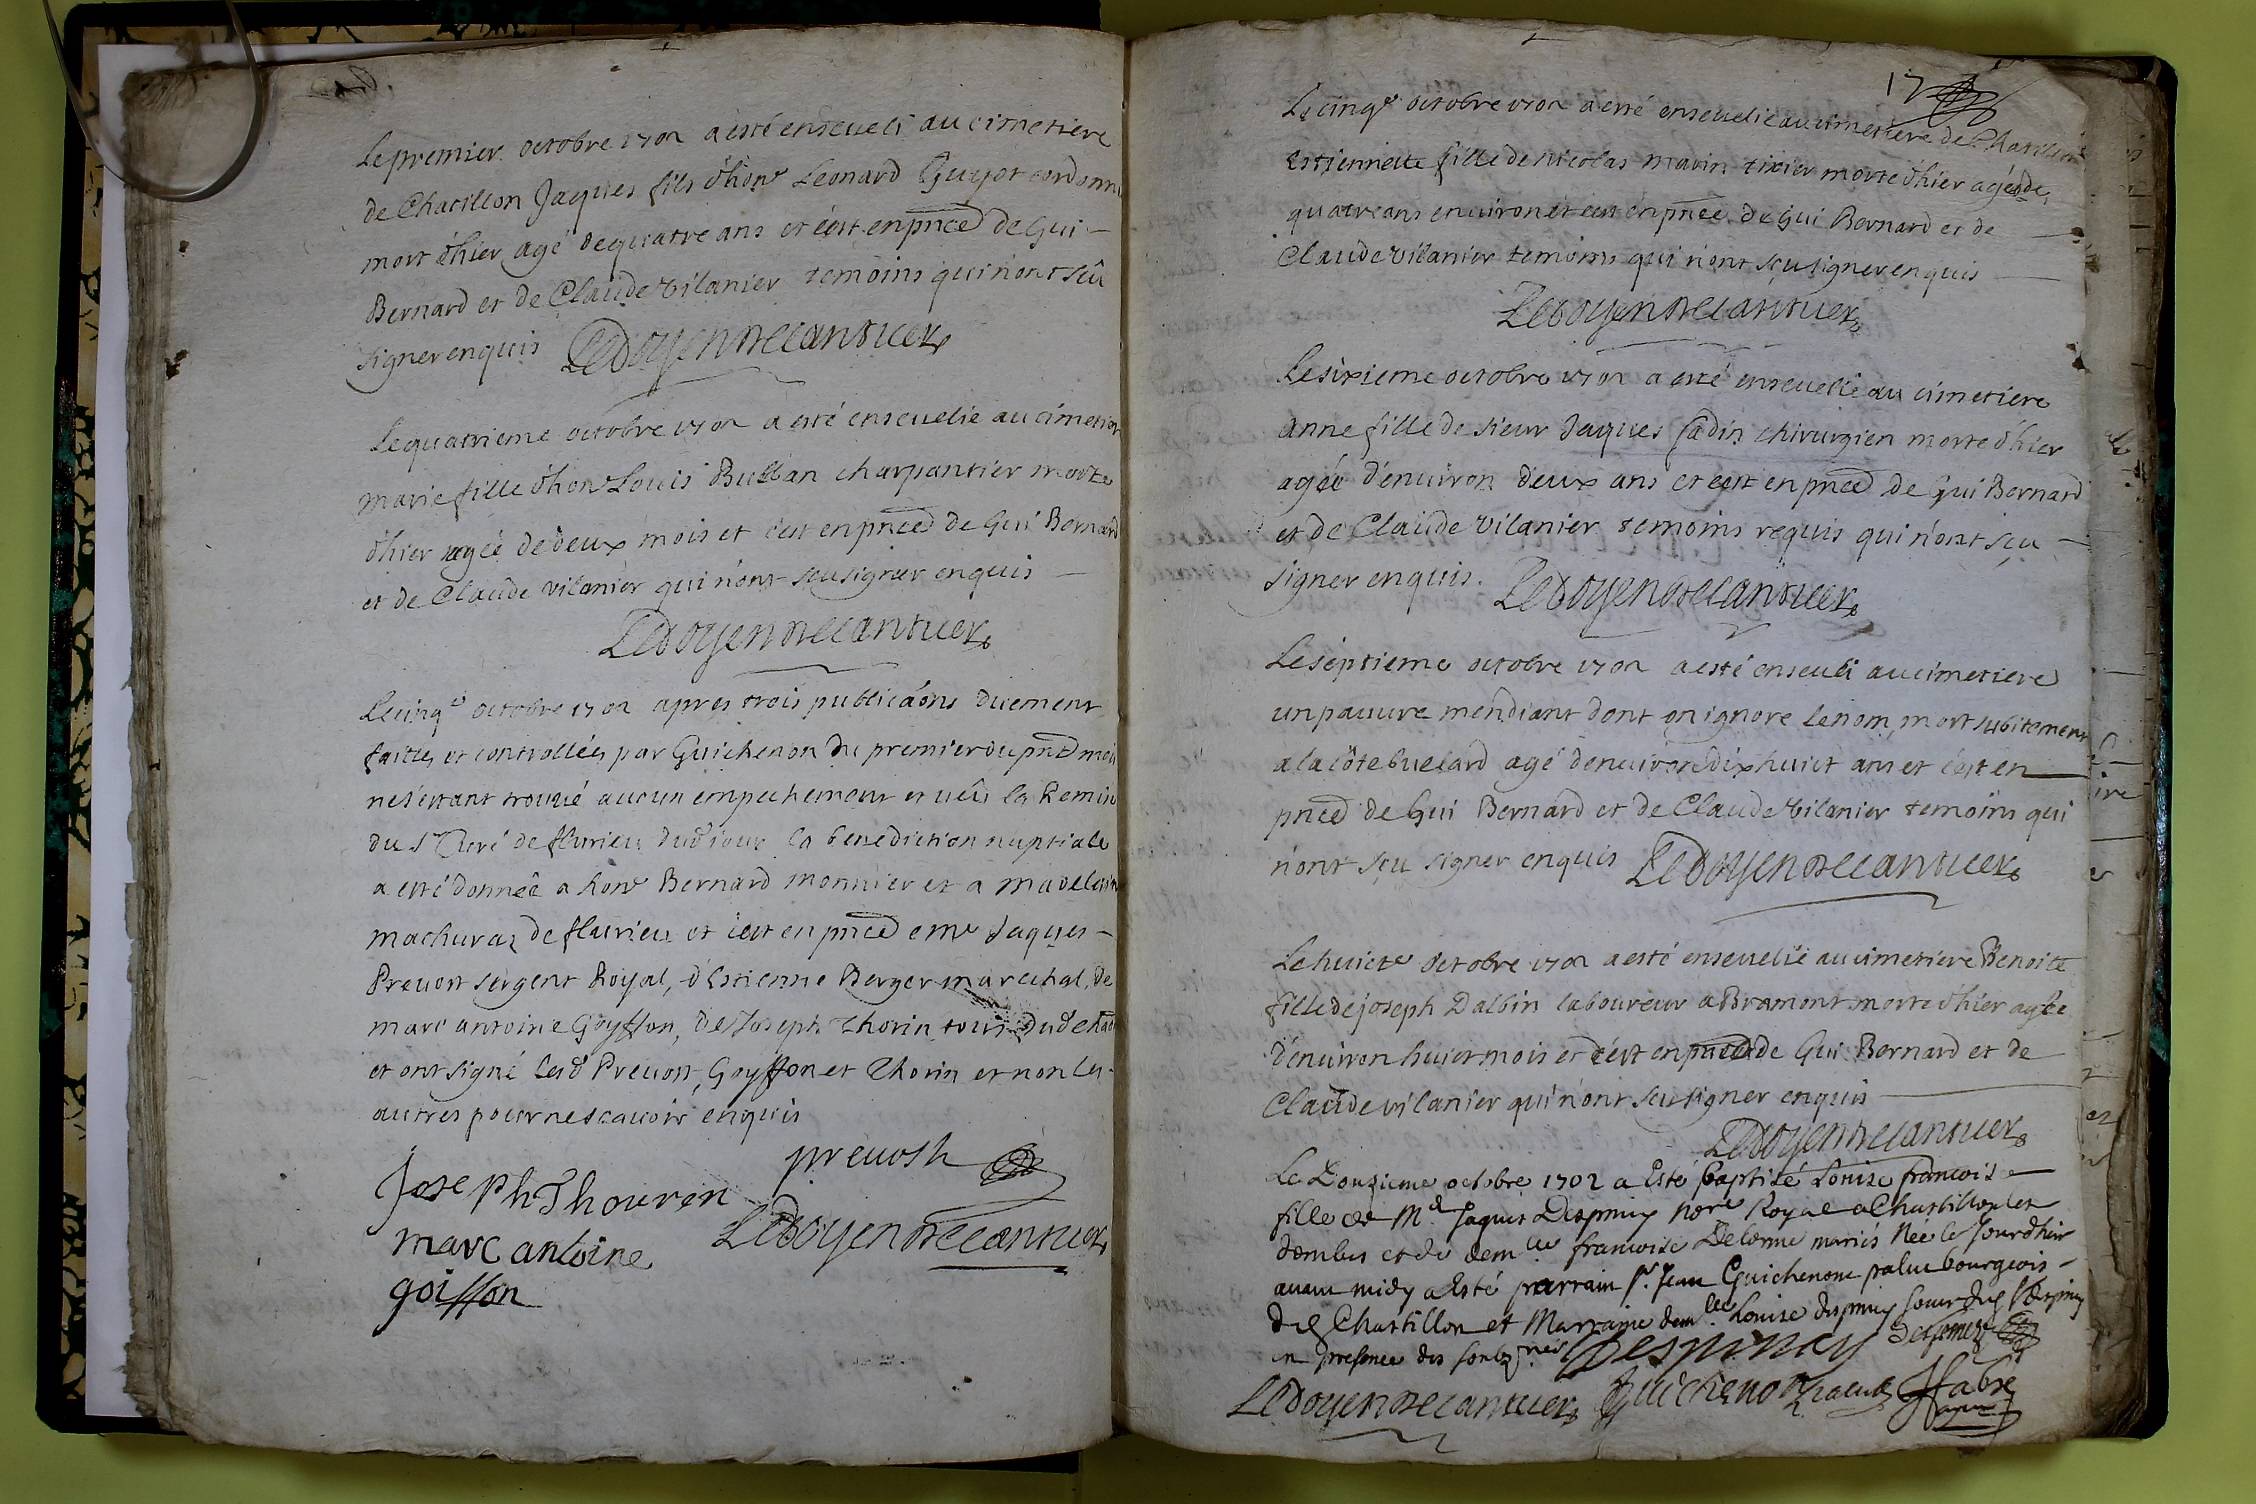 Le premier octobre 1702 a esté enseveli au cimetiere
de Chatillon Jaques fils d'hon.e Leonard Guyot cordonn
mort d'hier agé de quatre ans et c'est en pnce de Gui
Bernard et de Claude Vilanier temoins qui n'ont sçû
signer enquis Ledoyen
Le quatrieme octobre 1702 a esté ensevelie au cimetier
Marie fille d'hon.e Louis Bulban charpantier morte
d'hier agée de deux mois et c'est en pnce de Gui Bernard
et de Claude Vilanier qui n'ont sçu signer enquis
Ledoyen
Le cinq.e octobre 1702 apres trois publicâons duement
faittes et controllées par Guichenon du premier du pnt moi
ne s'estant trouvé aucun empechement et veû la Remise
du Sr Curé de flurieu dud jour la benediction nuptiale
a esté donnée a hon.e Bernard Monnier et a Madelein
Machuraz de flurieu et c'est en pnce e me Jaques
Prevost sergent Royal, d'Estienne Berger marechal, de
Marc antoine Goyffon, de Joseph Thorin tous dud Cha
et ont signé lesd Prevost, Goyffon et Thorin et non les
autres pour ne scavoir enquis
prevost
Joseph Thouren
Ledoyen
marc antoine
goiffon
17
Le cinq.e octobre 1702 a esté ensevelie au cimetiere de Chatillon
Estiennette fille de Nicolas Marin tixier morte d'hier agée de
quatre ans environ et c'est en pnce de Gui Bernard et de
Claude Vilanier temoins qui n'ont sçu signer enquis
Ledoyen
Le sixieme octobre 1702 a esté ensevelie au cimetiere
Anne fille de sieur Jaques Cadin chirurgien morte d'hier
agée d'environ deux ans et c'est en pnce de Gui Bernard
et de Claude Vilanier temoins requis qui n'ont sçu
signer enquis. Ledoyen
Le septieme octobre 1702 a esté enseveli au cimetiere
un pauvre mendiant dont on ignore le nom, mort subitement
a la côte buelard agé d'environ dixhuict ans et c'est en
pnce de Gui Bernard et de Claude Vilanier temoins qui
n'ont sçu signer enquis Ledoyen
Le huicte octobre 1702 a esté ensevelie au cimetiere Benoite
fille de Joseph Dalbin laboureur a Bramont morte d'hier agée
d'environ huict mois et c'est en pnce de Gui Bernard et de
Claude Vilanier qui n'ont sçu signer enquis
Ledoyen
Le Douzieme octobre 1702 a Esté baptisé Louise francoise
fille de M.e Jaques Despiney no.re Royal a Chastillon les
dombes et de dem.lle francoise Delorme mariés Née le Jour d'hier
avant midy a Esté parrain Sr. Jean Guichenon palue bourgeois
dud Chastillon et Marraine dem.lle Louise despiney soeur dud Sr Despiney
en presence des soubz.nés Despiney
Ledoyen Guichenon palue Ffabre